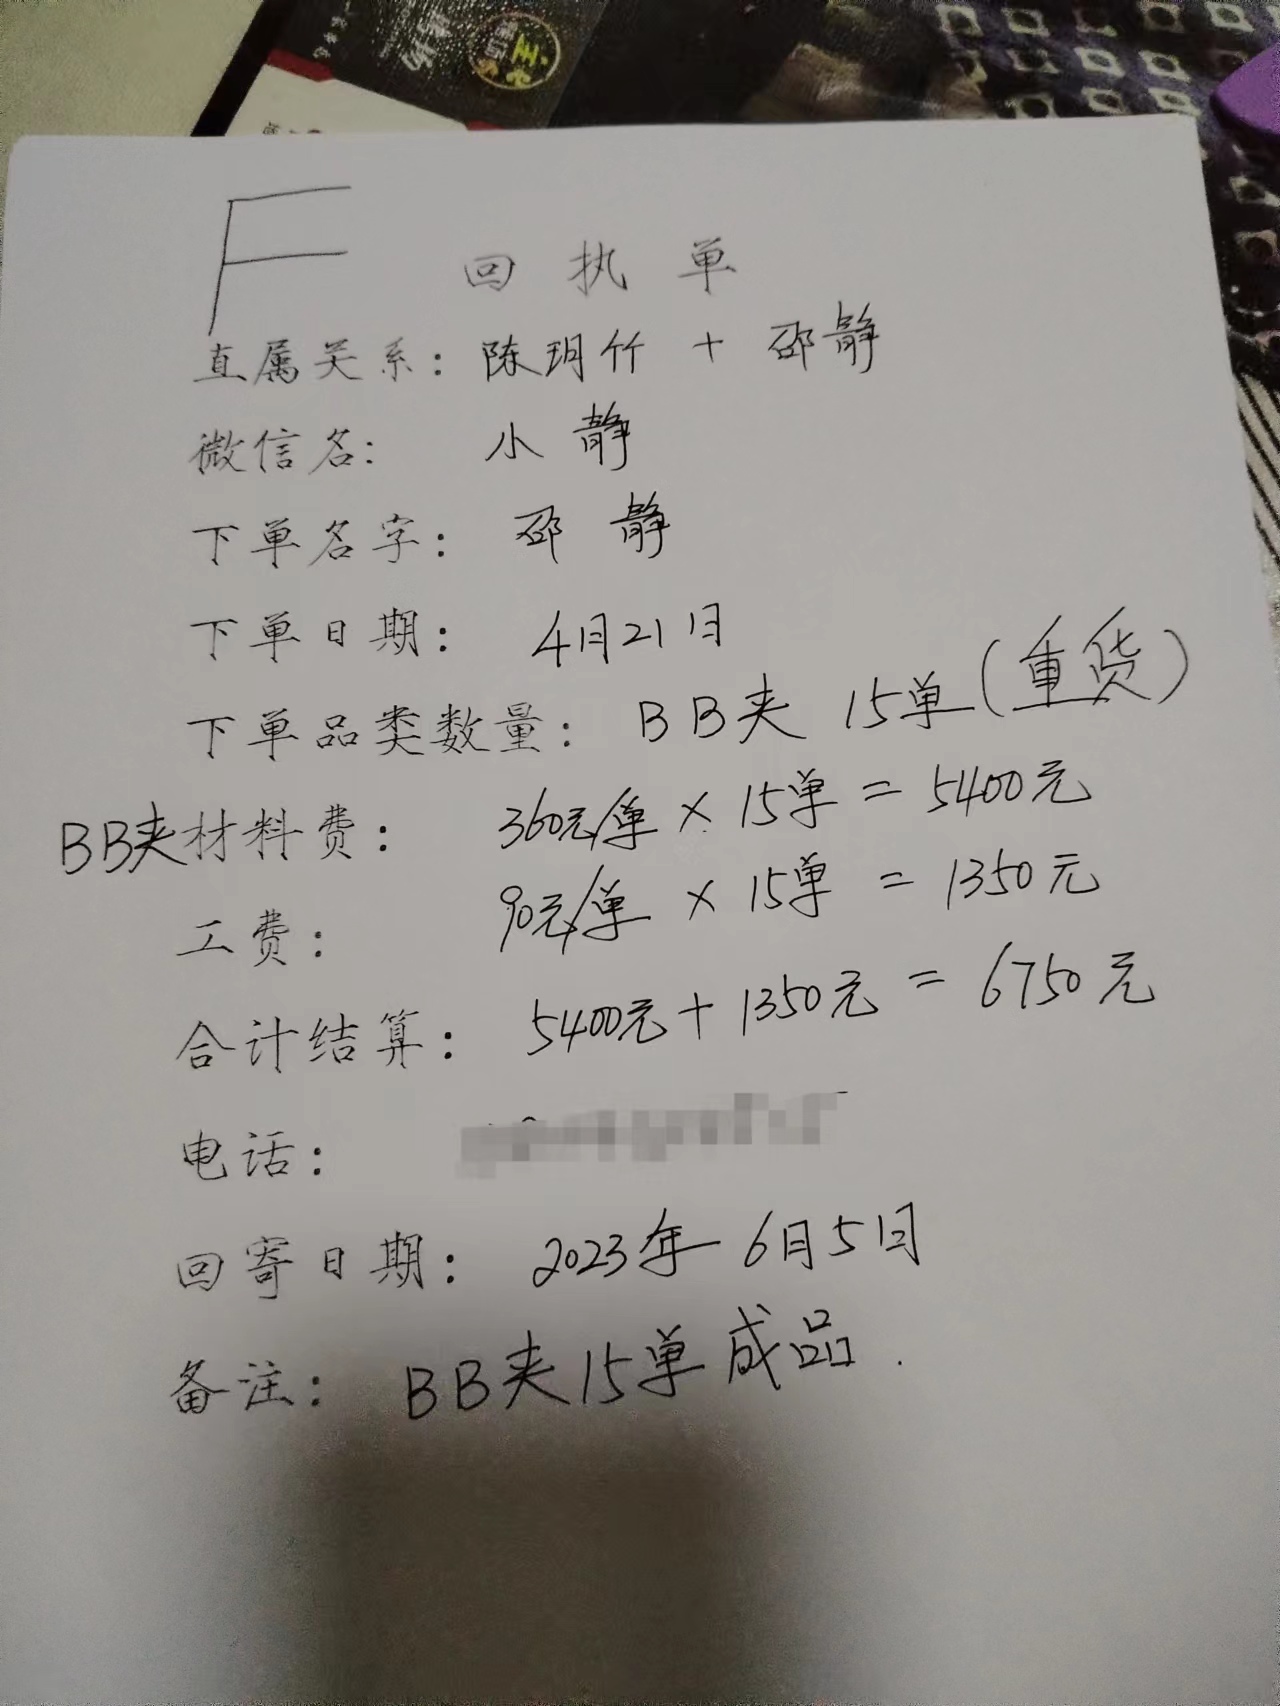 F
回执单
直属关系：陈玥竹 + 邵静
微信名：小静
下单名字：邵静
下单日期：4月21日
下单品类数量：BB夹 15单（重货）
BB夹材料费：360元/单 × 15单 = 5400元
工费：90元/单 × 15单 = 1350元
合计结算：5400元 + 1350元 = 6750元
电话：
回寄日期：2023年6月5日
备注：BB夹15单成品.